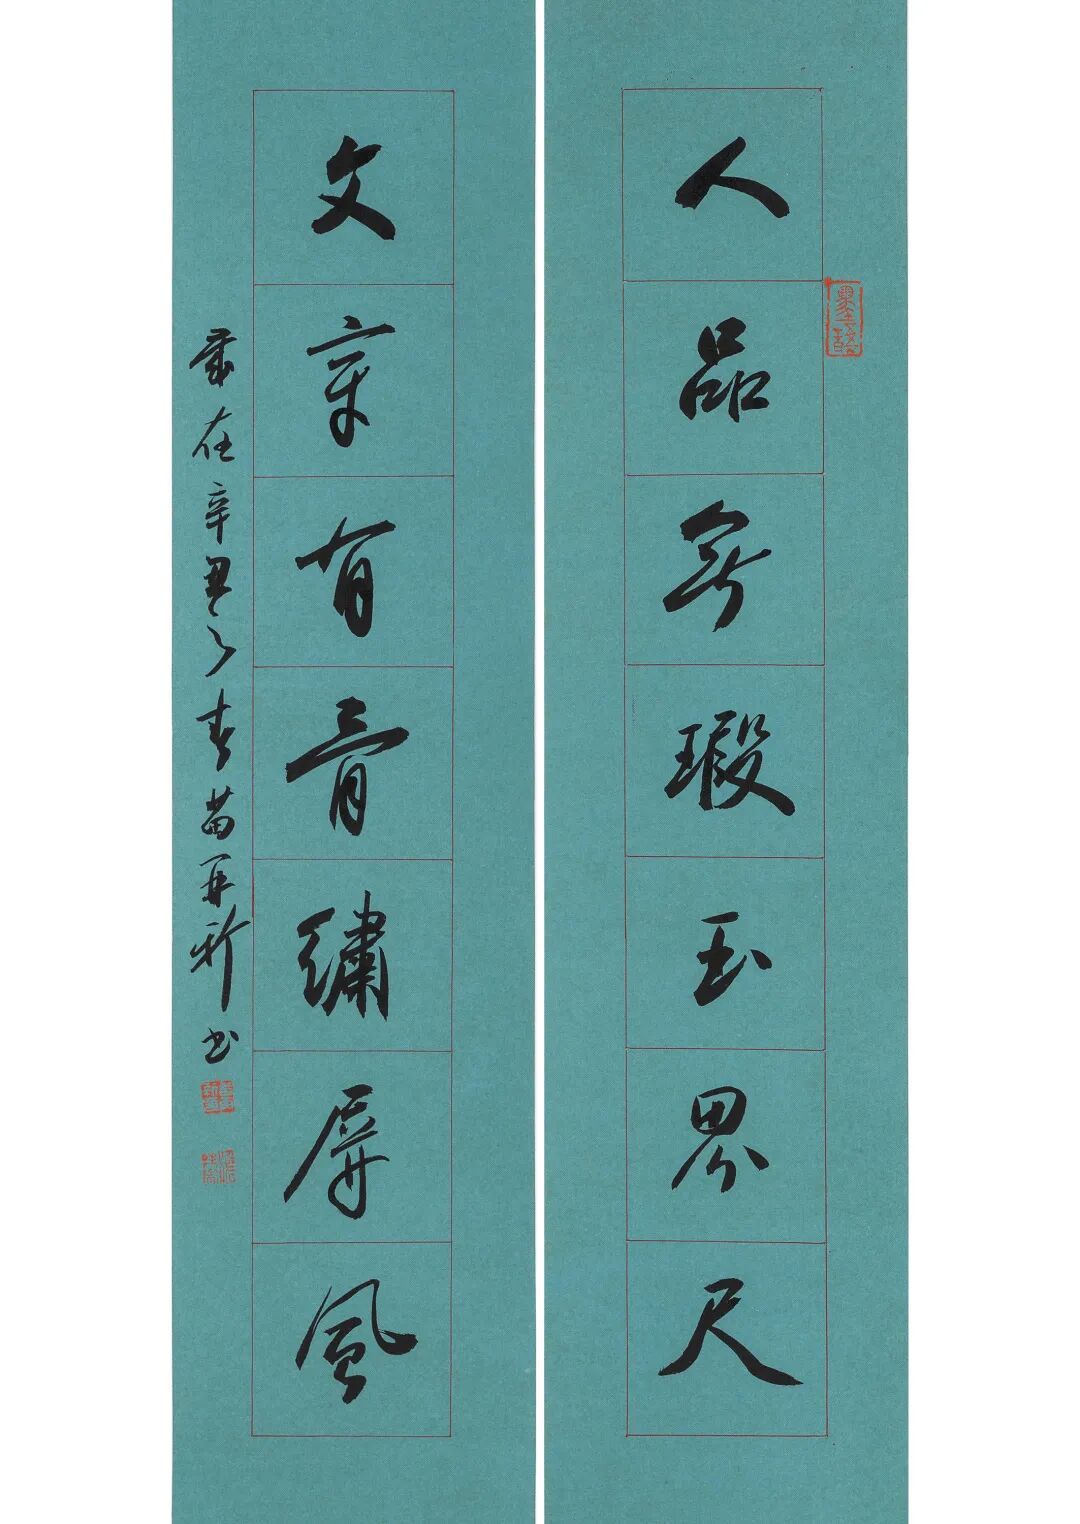 人品無瑕玉界尺
文章有骨繡屏風
歲在辛丑之春苗再新书